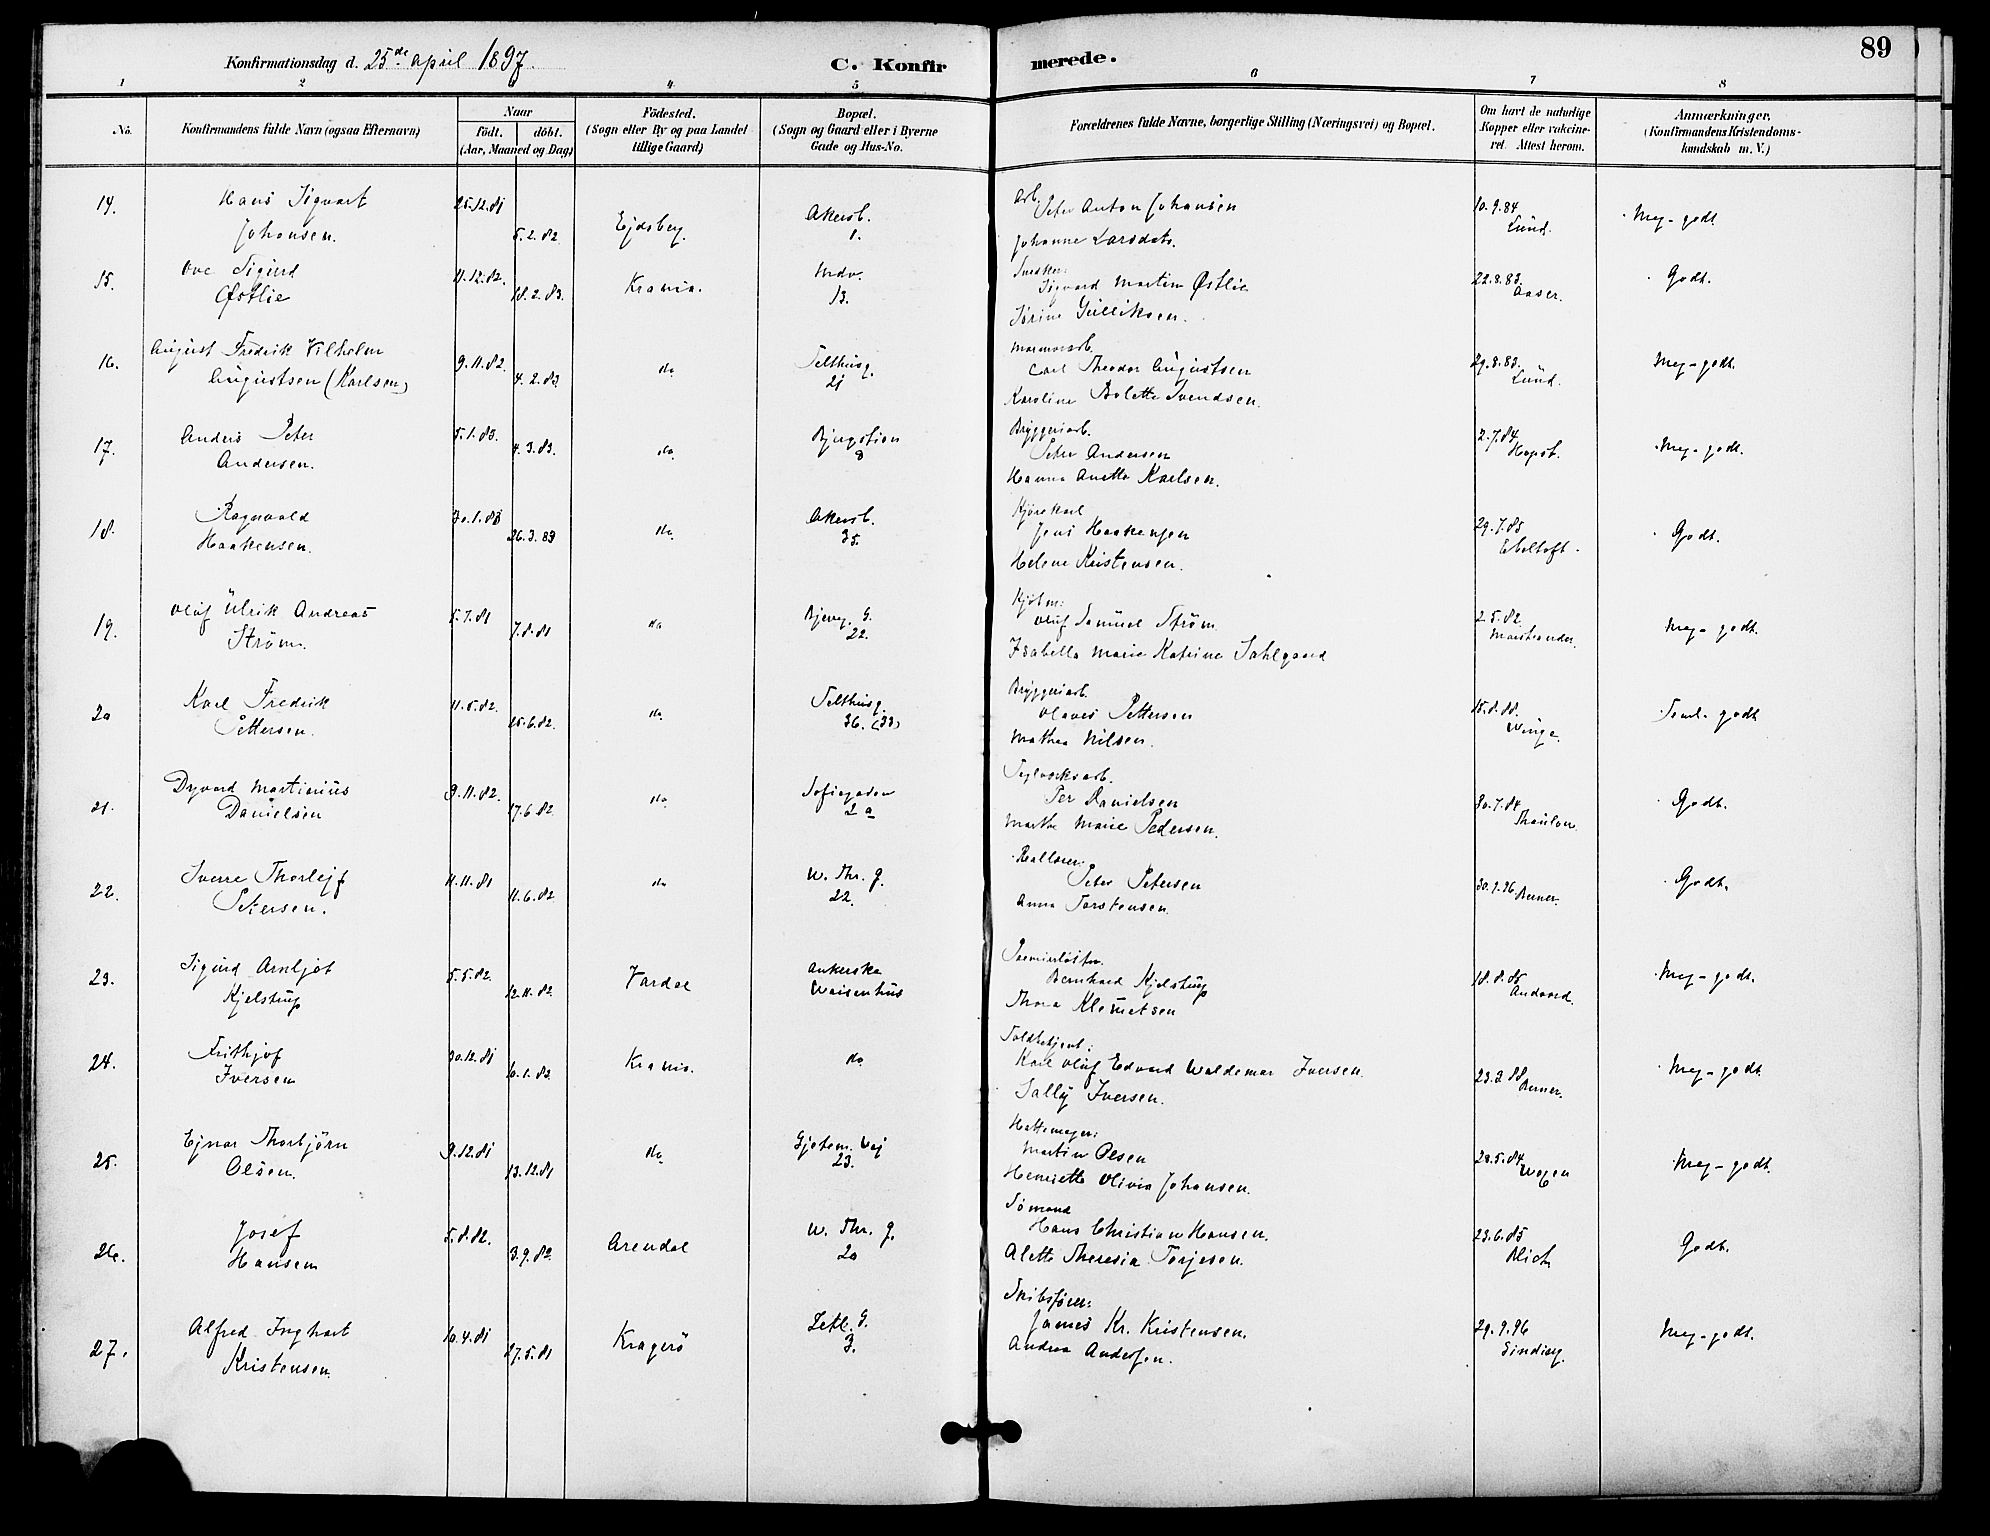 Konfirmationsdag d. 25de april 1897.
C. Konfirmerede.
89
1 2 3 4 5 6 7 8
No.
Konfirmandens fulde Navn (ogsaa Efternavn)
Naar
födt. döbt.
(Aar, Maaned og Dag)
Födested.
(Sogn eller By og paa Landet
tillige Gaard)
Bopæl.
(Sogn og Gaard eller i Byerne
Gade og Hus-No.
Forældrenes fulde Navne, borgerlige Stilling (Næringsvei) og Bopæl.
Om havt de naturlige
Kopper eller vakcine-
ret. Attest herom.
Anmærkninger,
(Konfirmandens Kristendoms-
kundskab m. V.)
14. Hans Sigvart
Johansen.
25.12.81
5.2.82
Ejdsberg.
Akersb.
1.
Arb.
Peter Anton Johansen
Johanne Larsdatr.
10.9.84
Lund.
Meg-godt
15. Ove Sigurd
Østlie
11.12.82.
18.2.83.
Krania.
13.
Snedker:
Sigvard Martin Østlie
Sörine Gulliksen.
22.8.83.
Aaser.
Godt.
16. August Fredrik Vilhelm
Augustsen (Karlsen)
9.11.82.
4.2.83
do
Telthusg.
21
Marmorarb.
Carl Theodor Augustsen
Karoline Bolette Svendsen.
29.8.83.
Lund.
Meg-godt.
17. Anders Peter
Andersen.
5.1.83.
4.3.83.
do
8
Bryggeriarb.
Peter Andersen
Hanna Anette Karlsen.
2.7.84
Hopst.
Meg-godt.
18. Ragnvald
Haakensen.
30.1.83
26.3.83
do
Akersb.
35.
Kjørekarl
Jens Haakensen
Helene Kristensen.
29.7.85
Ebeltoft.
Godt.
19. Oluf Ulrik Andreas
Strøm.
5.7.81
7.8.81
do
22.
Kjøbm:
Oluf Samuel Strøm
Isabella Marie Katrine Dahlgaard
2.5.82.
Marstrander.
Meg-godt.
20 Karl Fredrik
Pettersen.
11.5.82.
25.6.82.
do
Telthusg.
36. (33)
Bryggeriarb.
Olaves Pettersen
Mathea Nilsen.
15.8.88.
Winge.
Teml. godt
21. Dyvard Martinius
Danielsen
9.11.82.
17.6.82.
do
Sofiegaden
2 a
Teglverksarb.
Per Danielsen
Marthe Marie Pedersen.
30.7.84
Thaulow.
Godt.
22. Sverre Thorlejf
Petersen.
11.11.81
11.6.82
do
W. Thr. g.
22.
Peter Petersen
Anna Torstensen.
30.1.96 Berner.
Godt.
23. Sigurd Arnljot
Kjelstrup
5.5.82.
12.11.82.
Vardal
Ankerske
Waisenhus
Premierløitn.
Bernhard Kjelstrup
Thora Klemetsen
18.8.86
Andvord.
Meg-godt.
24. Frithjof
Iversen
30.12.81
Krania.
do
Toldbetjent:
Karl Oluf Edvard Waldemar Iversen.
Sally Iversen.
23.3.88 Berner.
Meg-godt
25. Ejnar Thorbjörn
Olsen.
9.12.81
13.12.81
do
Gjetem. Vej
23.
Hattemager:
Martin Olsen
Henriette Olivia Johansen.
28.5.84
Wogen
Meg-godt.
26. Josef
Hansen
5.8.82.
3.9.82.
Arendal
W. Thr. g.
20
Sømand
Hans Christian Hansen.
Alette Theresia Torjesen.
23.6.85
Blich
Godt.
27. Alfred Inghart
Kristensen.
10.4.81
27.5.81
Kragerö
Zetl. G.
3.
Skibsfører:
James Kr. Kristensen.
Andrea Andersen.
29.9.96
Sinding.
Meg-godt.